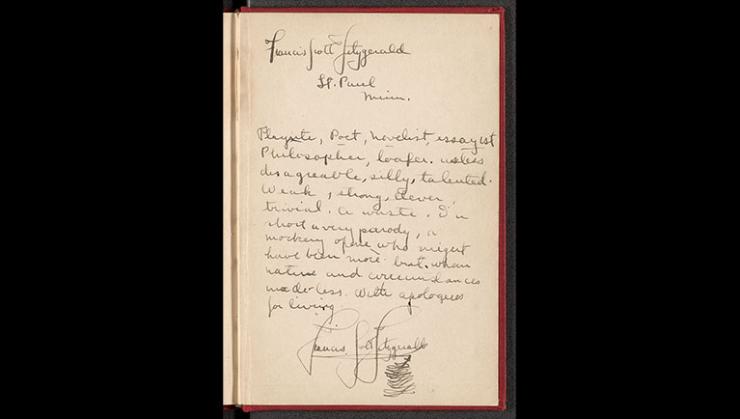 Francis Scott Fitzgerald
St. Paul
Minn.
Playrite, Poet, Novelist, essayist
Philosopher, loafer. useless
disagreable, silly, talented.
Weak, strong, clever,
trivial. a waste. In
short a very parody, a
mockery of one who might
have been more but whom
nature and circumstances
made less. With apologies
for living
Francis Scott Fitzgerald